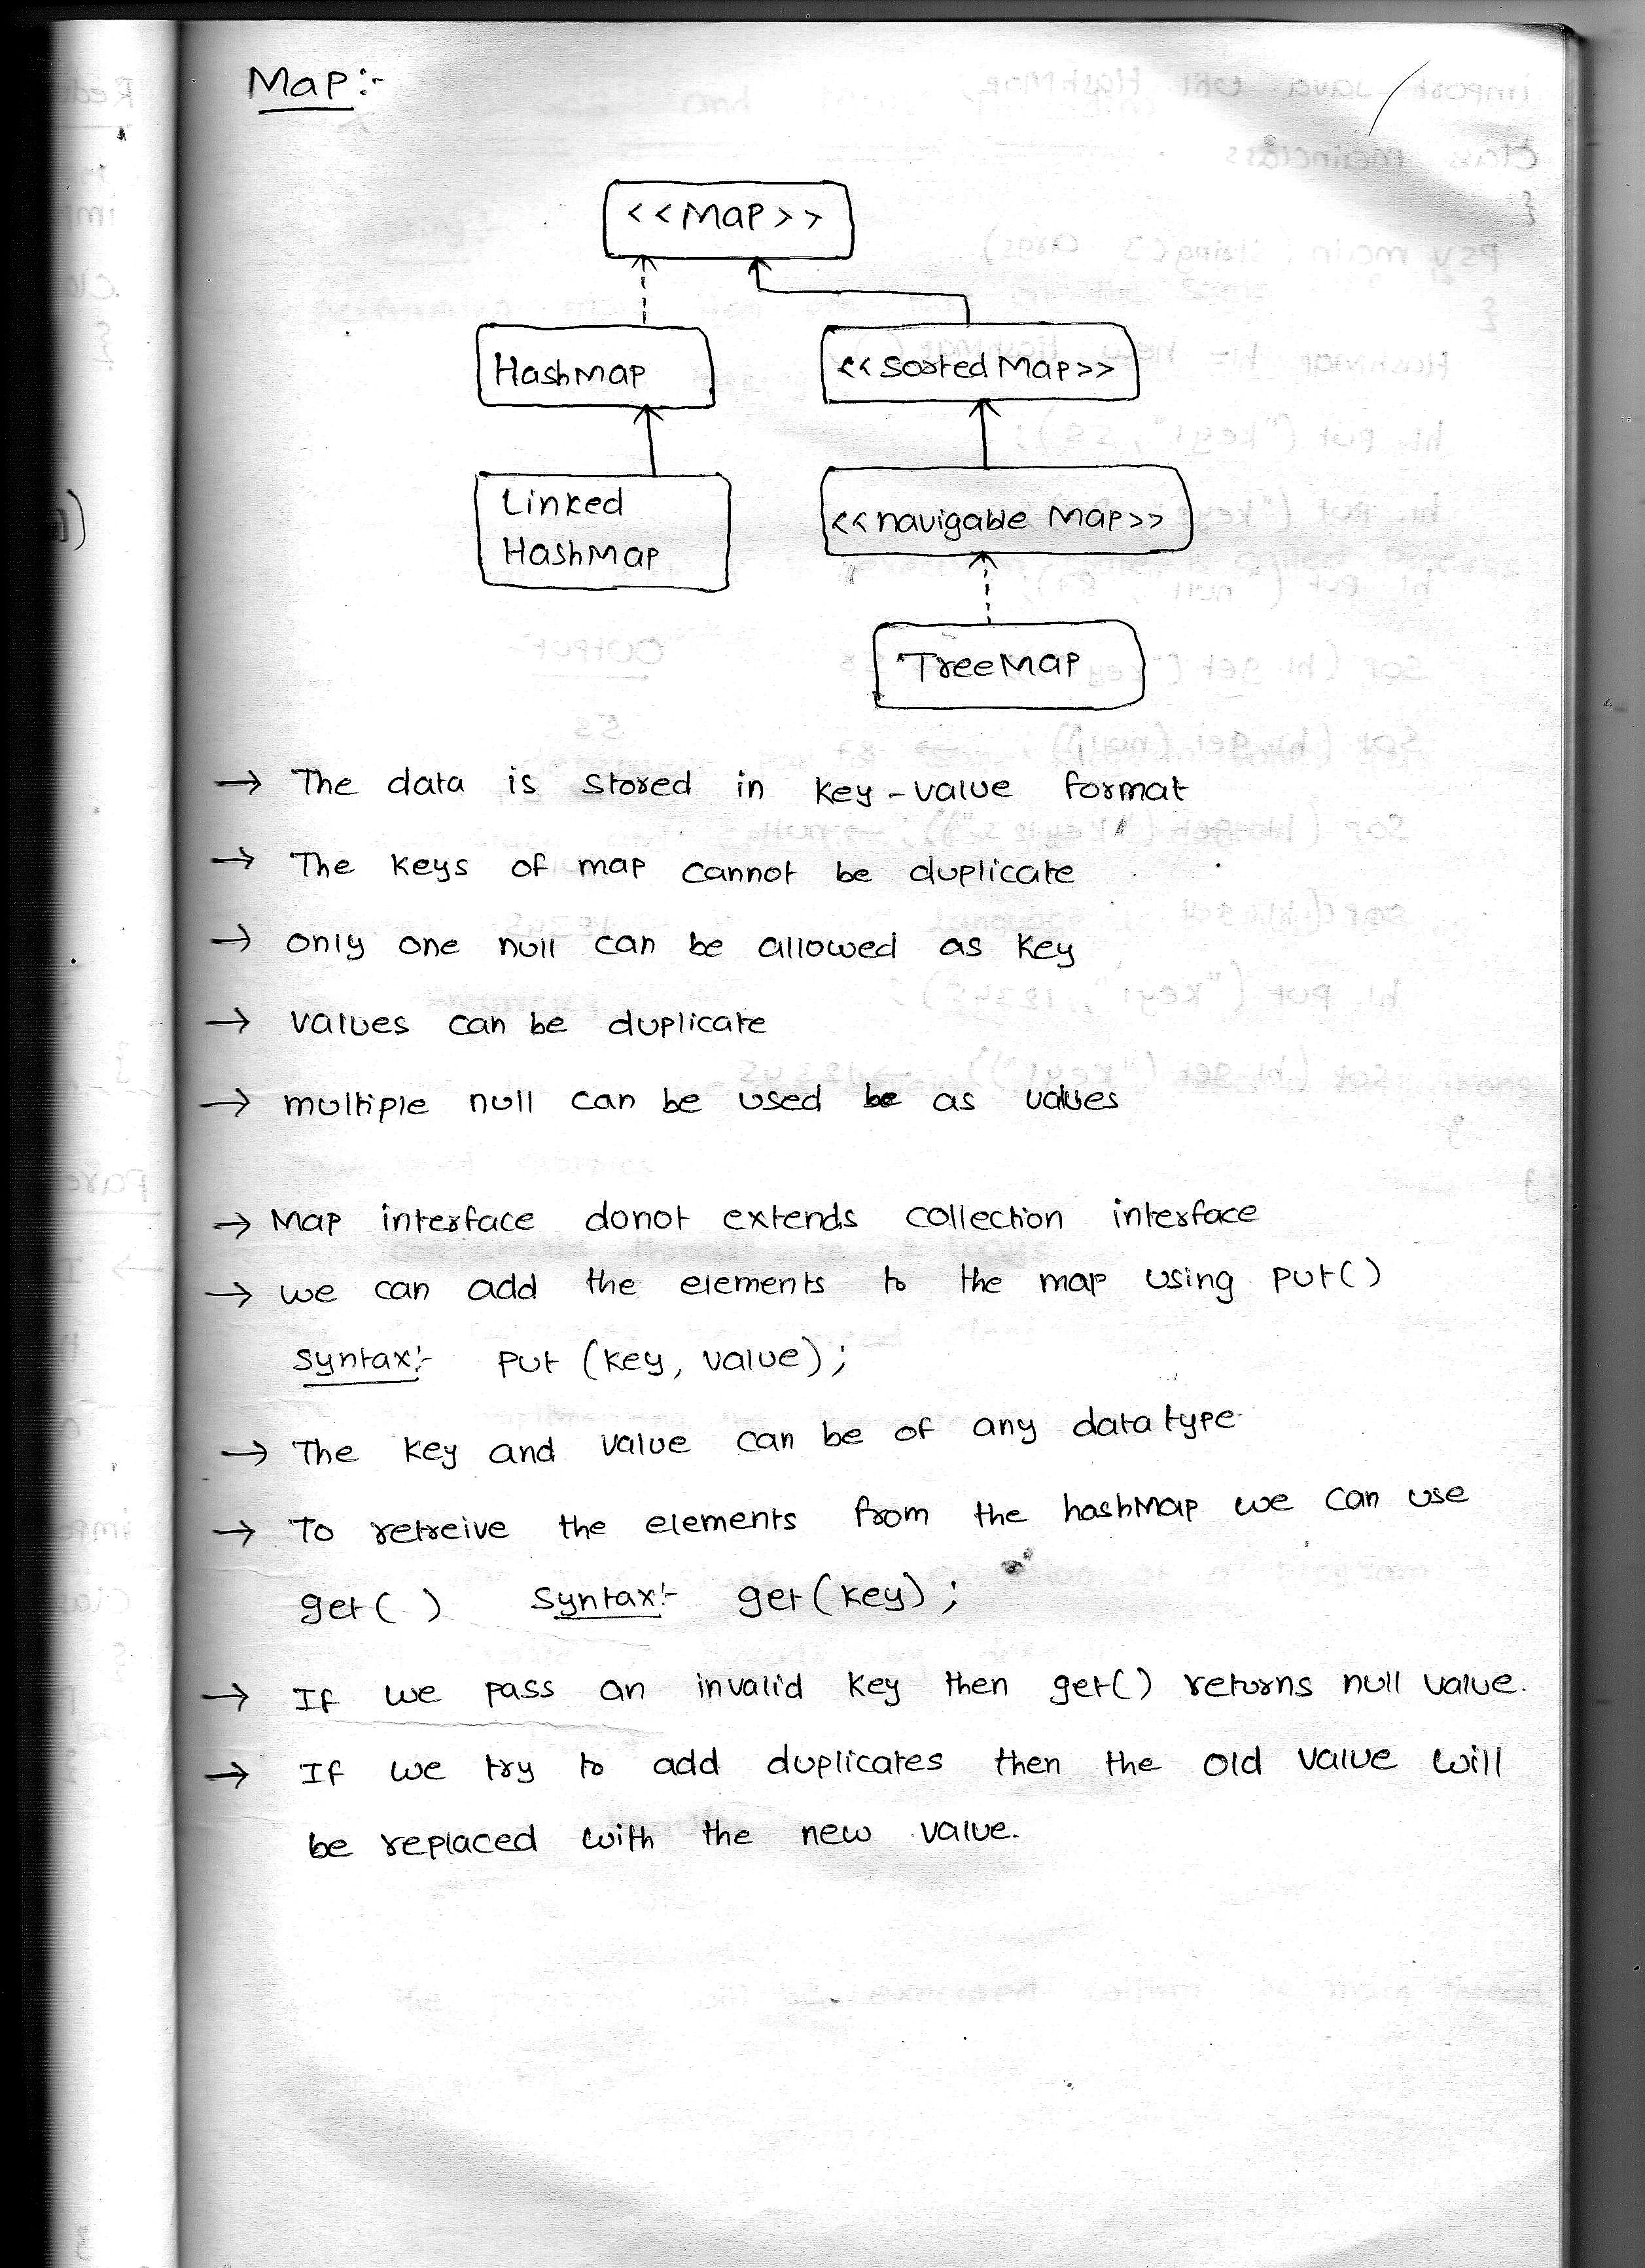 Map:-
<<Map>>
HashMap
<<Sorted Map>>
Linked
HashMap
<<navigable Map>>
TreeMap
→ The data is stored in key-value format
→ The keys of map cannot be duplicate
→ only one null can be allowed as key
→ values can be duplicate
→ multiple null can be used be as values
→ Map interface donot extends collection interface
→ we can add the elements to the map using put()
Syntax:- put (key, value);
→ The key and value can be of any data type
→ To retreive the elements from the hashMap we can use
get( ) Syntax:- get(key);
→ If we pass an invalid key then get() returns null value.
→ If we try to add duplicates then the old value will
be replaced with the new value.